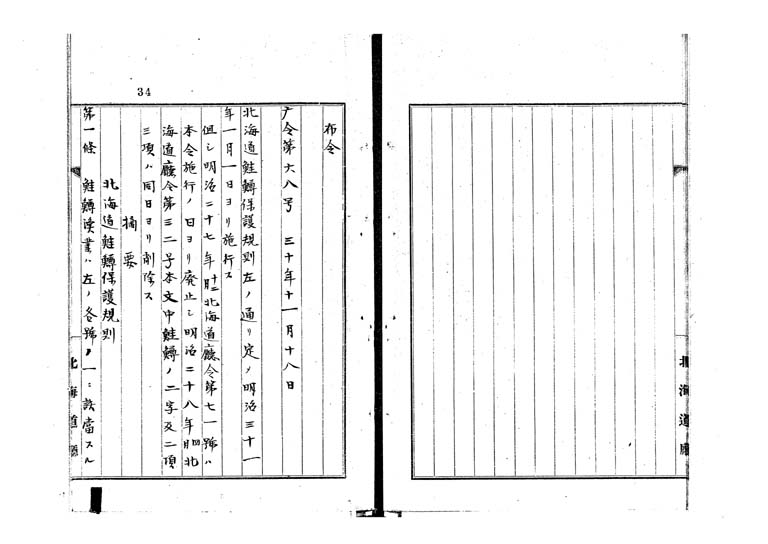 34
布令
庁令第六八号 三十年十一月十八日
北海道鮭鱒保護規則左ノ通リ定メ明治三十一
年一月一日ヨリ施行ス
但シ明治二十七年十二月北海道廳令第七一號ハ
本令施行ノ日ヨリ廃止シ明治二十八年四月北
海道廳令第三二号本文中鮭鱒ノ二字及二項
三項ハ同日ヨリ削除ス
摘要
北海道鮭鱒保護規則
第一條 鮭鱒漁業ハ左ノ各號ノ一ニ該當スル
北海道廳
北海道廳